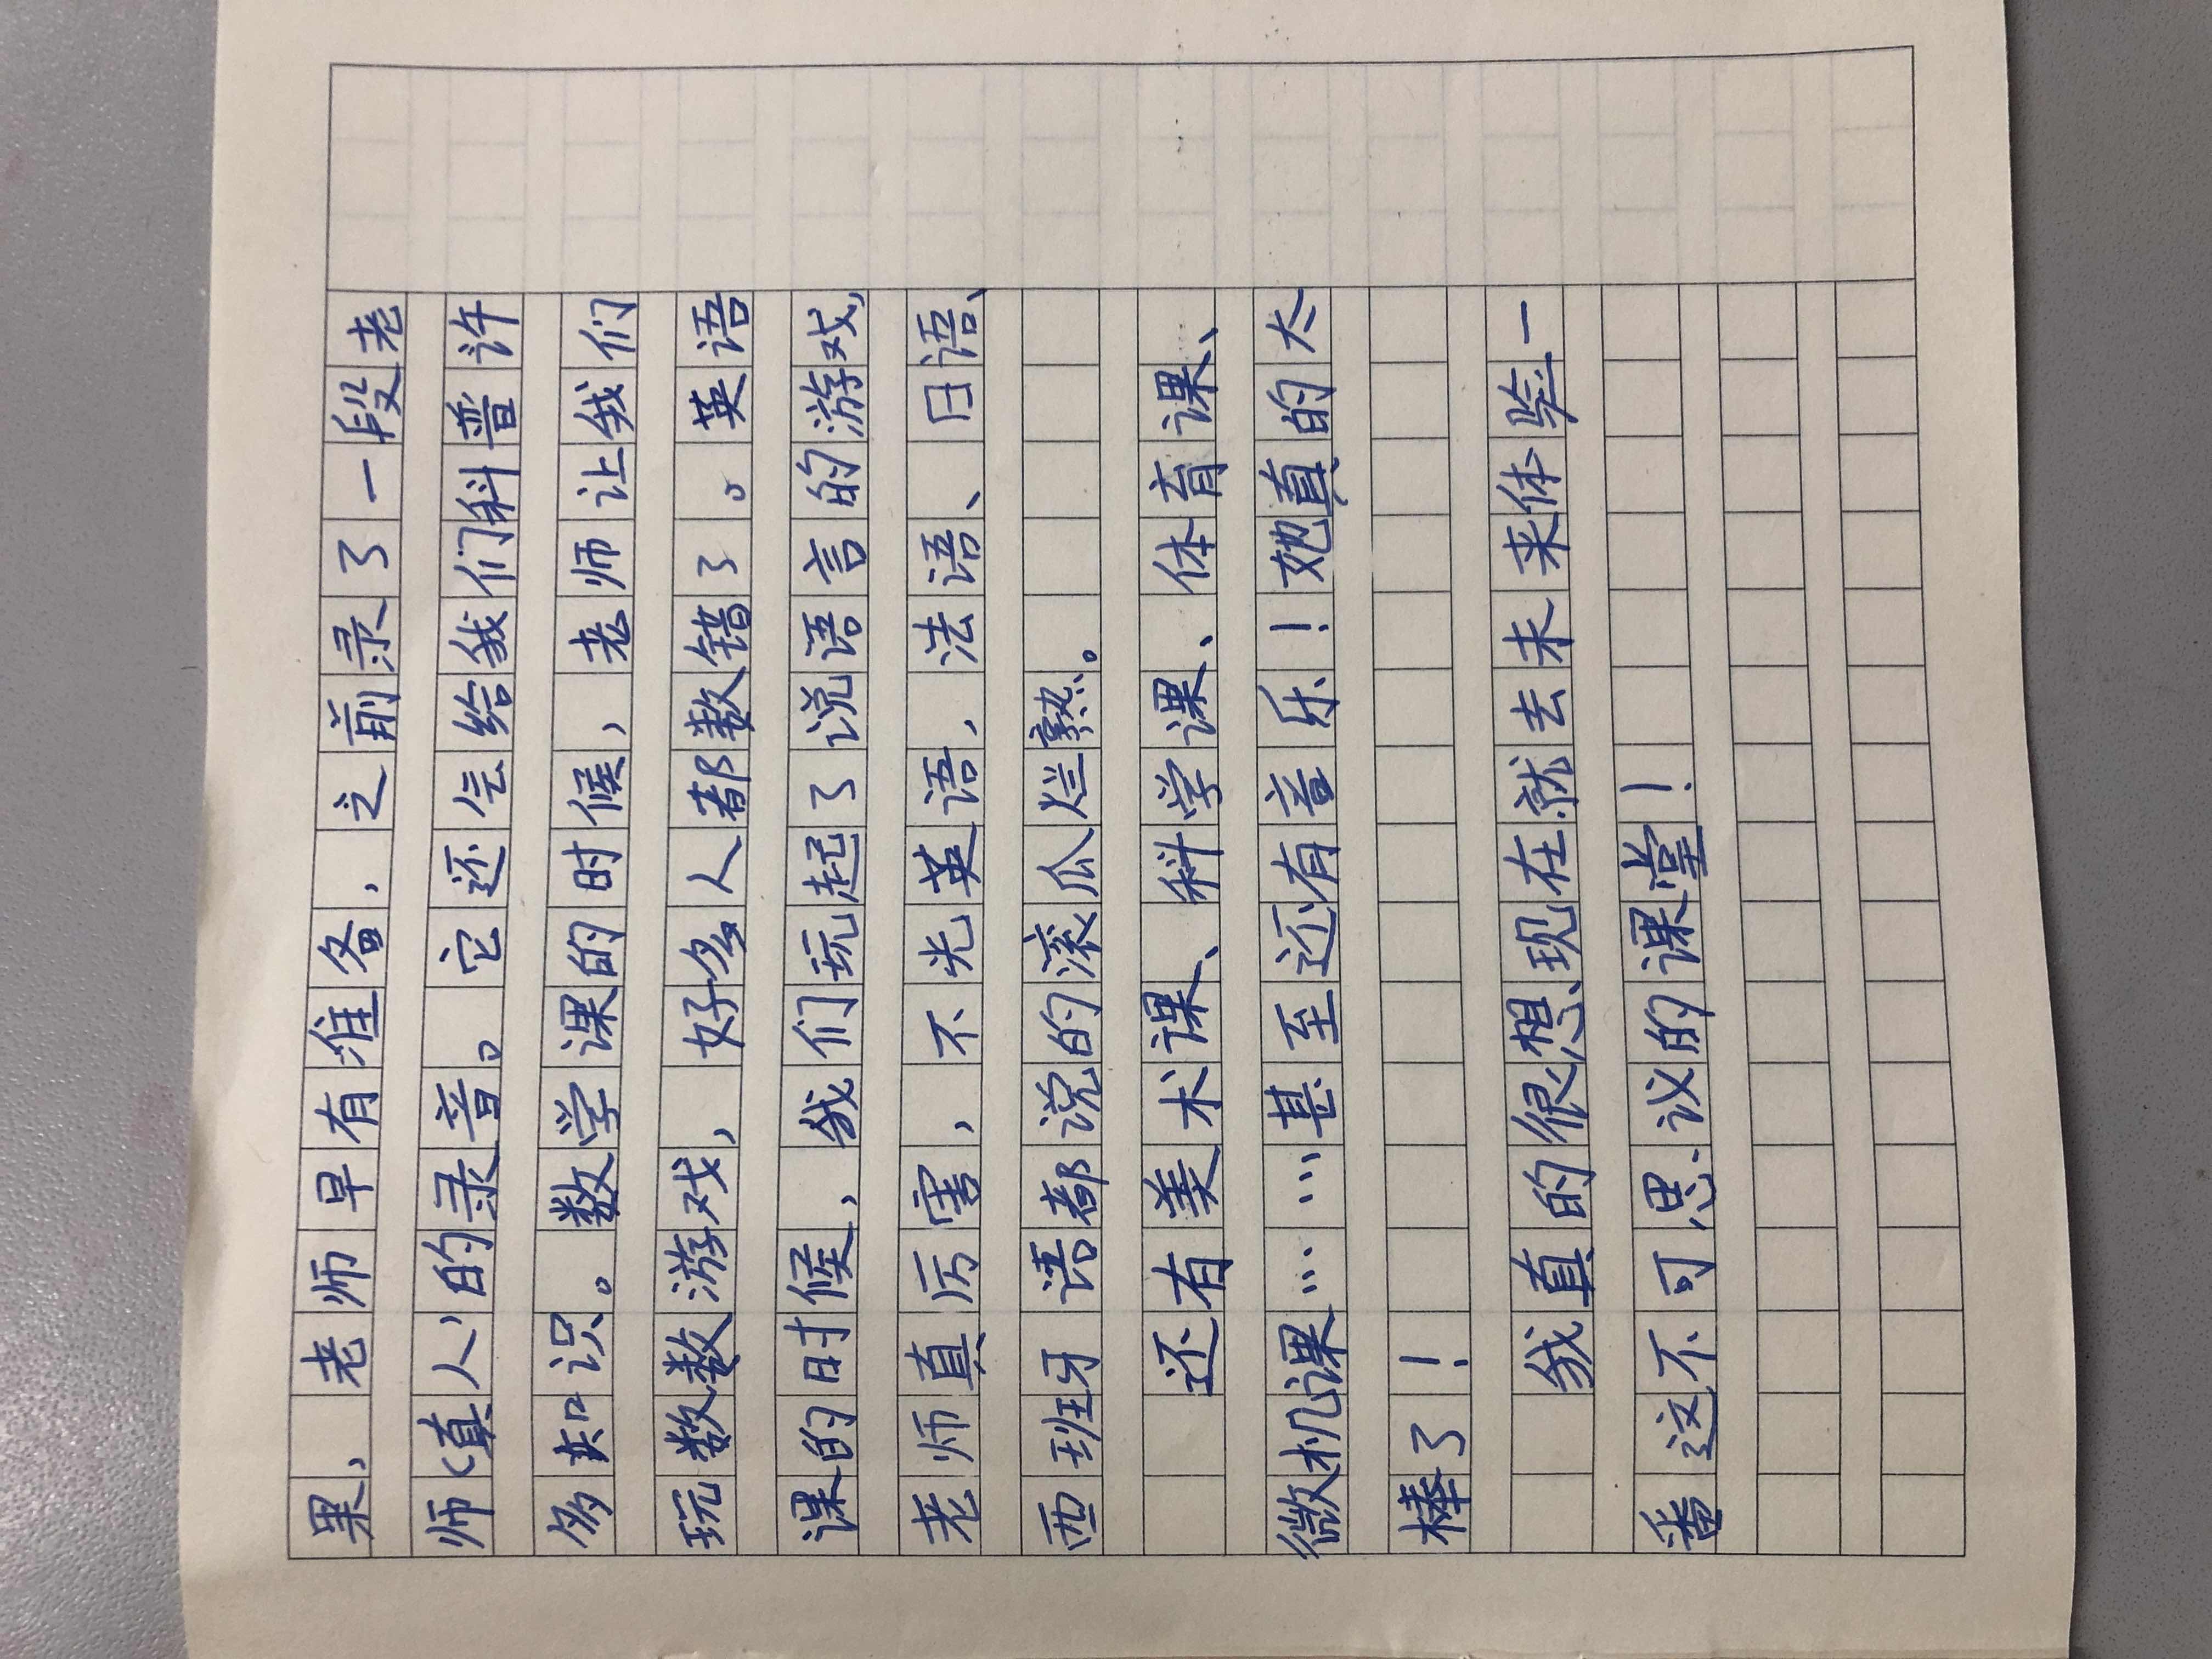 果，老师早有准备，之前录了一段老
师（真人）的录音。它还会给我们科普许
多知识。数学课的时候，老师让我们
玩数数游戏，好多人都数错了。英语
课的时候，我们玩起了说语言的游戏，
老师真厉害，不光英语，法语、日语、
西班牙语都说的滚瓜烂熟。
还有美术课、科学课、体育课、
微机课……甚至还有音乐！她真的太
棒了！
我真的很想现在就去未来体验一
番这不可思议的课堂！